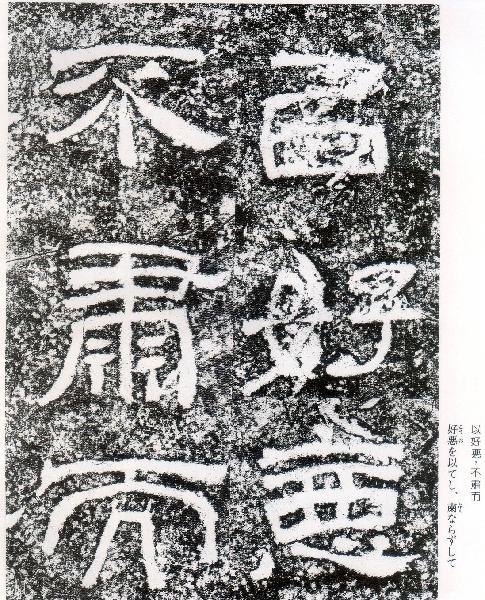 以好悪・不粛而
好悪を以てし、粛ならずして
㠯好惡
不肅而